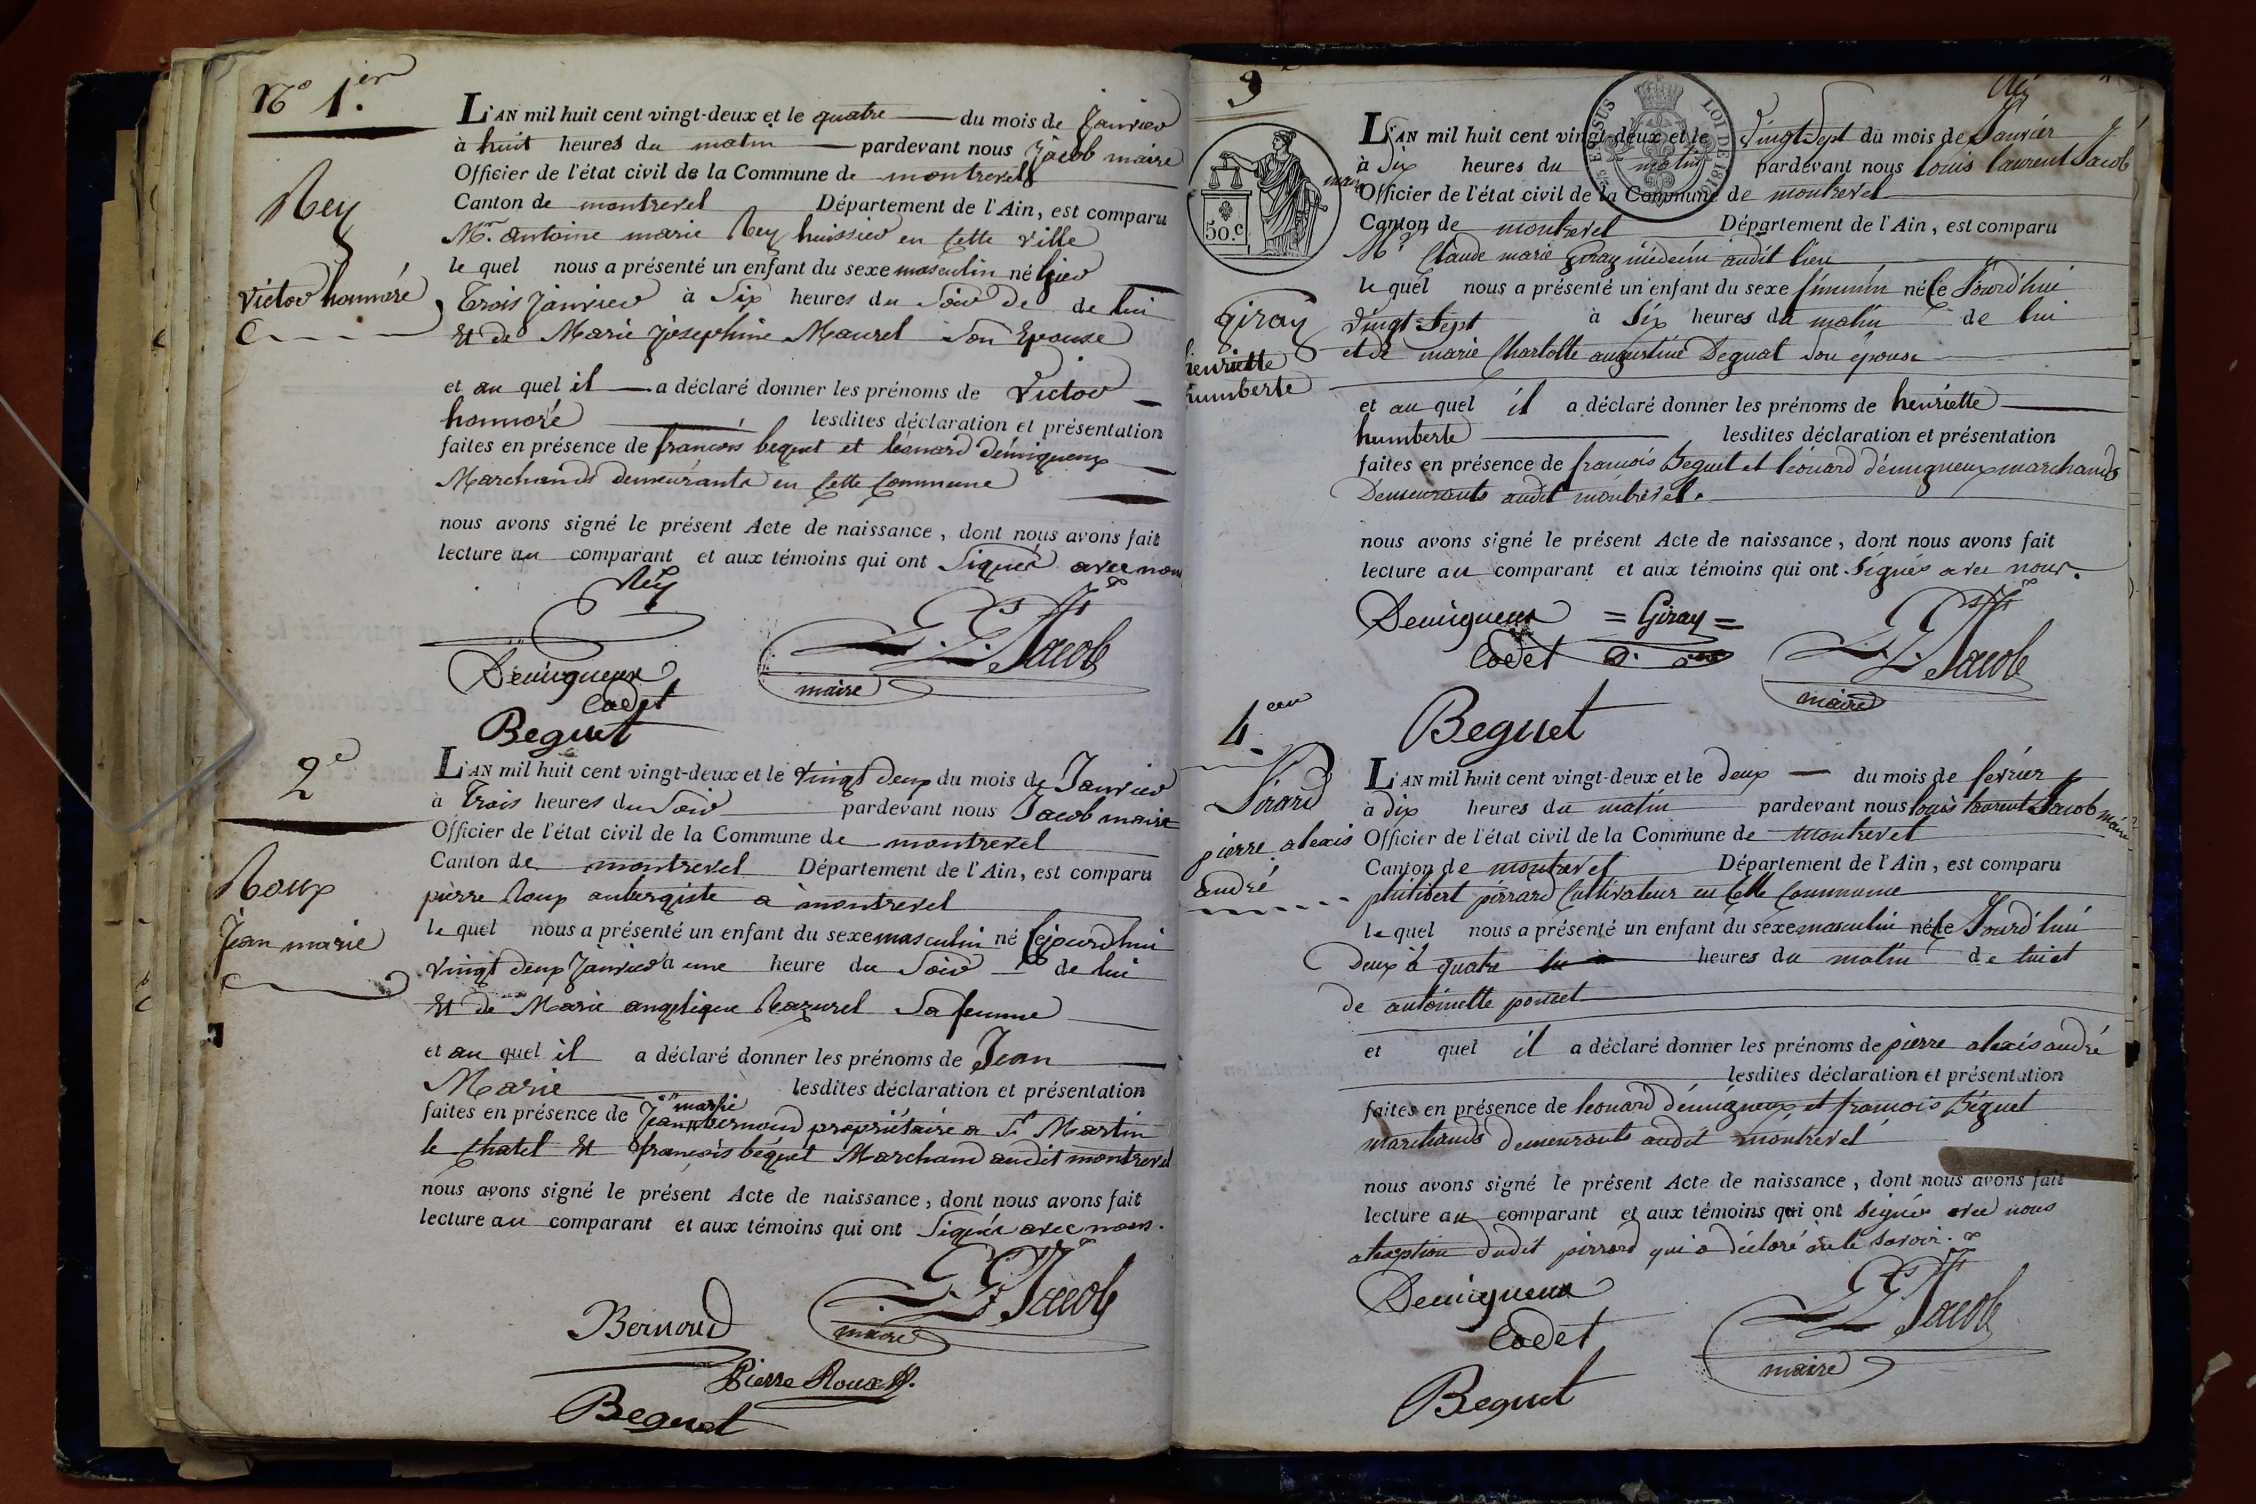 N.º 1.er
Rey
Victor honnoré
L'AN mil huit cent vingt-deux et le quatre du mois de Janvier
à huit heures du matin pardevant nous Jacob maire
Officier de l'état civil de la Commune de montrevel
Canton de montrevel Département de l'Ain, est comparu
Mr. antoine marie Rey huissier en cette ville
le quel nous a présenté un enfant du sexe masculin né hier
trois Janvier à Six heures du Soir de de lui
Et de Marie Josephine Maurel Son Epouse
et au quel il a déclaré donner les prénoms de Victor
honnoré lesdites déclaration et présentation
faites en présence de francois beguet et léonard démigneux
Marchands demeurants en cette commune
nous avons signé le présent Acte de naissance, dont nous avons fait
lecture au comparant et aux témoins qui ont Signés avec nous
Rey
L. L. Jacob
maire
Demigneux
Cadet
Beguet
2e
Roux
Jean marie
L'AN mil huit cent vingt-deux et le vingt deux du mois de Janvier
à trois heures du Soir pardevant nous Jacob maire
Officier de l'état civil de la Commune de montrevel
Canton de montrevel Département de l'Ain, est comparu
pierre Roux aubergiste a montrevel
le quel nous a présenté un enfant du sexe masculin né cejourdhui
vingt deux Janvier a une heure du Soir de lui
Et de Marie angelique Razurel Sa femme
et au quel il a déclaré donner les prénoms de Jean
Marie lesdites déclaration et présentation
marie
faites en présence de Jean bernoud propriétaire a St Martin
le chatel Et françois béguet Marchand audit montrevel
nous avons signé le présent Acte de naissance, dont nous avons fait
lecture au comparant et aux témoins qui ont Signés avec nous.
L. L. Jacob
maire
Bernoud
Pierre Roux
Beguet
3
50.c
LOI DE 1816
giray
henriette
humberte
L'AN mil huit cent vingt-deux et le vingt Sept du mois de Janvier
à Six heures du matin pardevant nous louis laurent Jacob
maire
Officier de l'état civil de la Commune de montrevel
Canton de montrevel Département de l'Ain, est comparu
Mr Claude marie giray médecin audit lieu
le quel nous a présenté un enfant du sexe féminin né ce Jourd'hui
vingt Sept à Six heures du matin de lui
et de marie Charlotte augustine Deguat son épouse
et au quel il a déclaré donner les prénoms de henriette
humberte lesdites déclaration et présentation
faites en présence de francois Beguet et léonard démigneux marchands
Demeurants audit montrevel.
nous avons signé le présent Acte de naissance, dont nous avons fait
lecture au comparant et aux témoins qui ont Signés avec nous.
Demigneux = Giray =
Cadet
L. L. Jacob
maire
Beguet
4.
Pirard
pierre alexis
andré
L'AN mil huit cent vingt-deux et le deux du mois de février
à dix heures du matin pardevant nous louis laurent Jacob maire
Officier de l'état civil de la Commune de Montrevel
Canton de montrevel Département de l'Ain, est comparu
philibert pirrard Cultivateur en cette Commune
le quel nous a présenté un enfant du sexe masculin né ce Jourd'hui
Deux à quatre heures du matin de lui et
de antoinette poncet
et quel il a déclaré donner les prénoms de pierre alexis andré
lesdites déclaration et présentation
faites en présence de leonard démigneux et francois Béguet
marchands demeurants audit montrevel
nous avons signé le présent Acte de naissance, dont nous avons fait
lecture au comparant et aux témoins qui ont Signés avec nous
a lexeption dudit pirrard qui a déclaré ne le savoir.
Demigneux
Cadet
L. L. Jacob
maire
Beguet